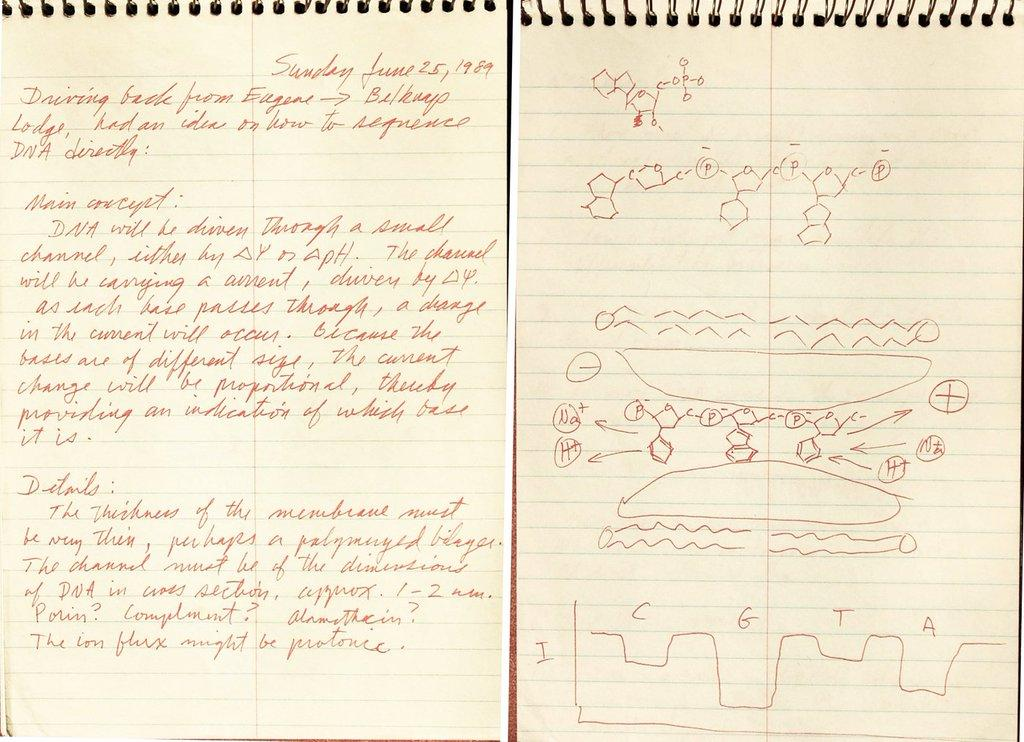 Sunday June 25, 1989
Driving back from Eugene → Belknap
Lodge, had an idea on how to sequence
DNA directly:
Main concept:
DNA will be driven through a small
channel, either by ΔΨ or ΔpH. The channel
will be carrying a current, driven by ΔΨ.
As each base passes through, a change
in the current will occur. Because the
bases are of different size, the current
change will be proportional, thereby
providing an indication of which base
it is.
Details:
The thickness of the membrane must
be very thin, perhaps a polymerized bilayer.
The channel must be of the dimensions
of DNA in cross section, approx. 1-2 nm.
Porin? Compliment? Alamethicin?
The ion flux might be protonic.
O
C-O-P-O
O
O
O
C O C - P - O C - P - O C - P -
-
+
Na+ P - O C - P - O C - P - O C -
H+ Na+
H+
C G T A
I